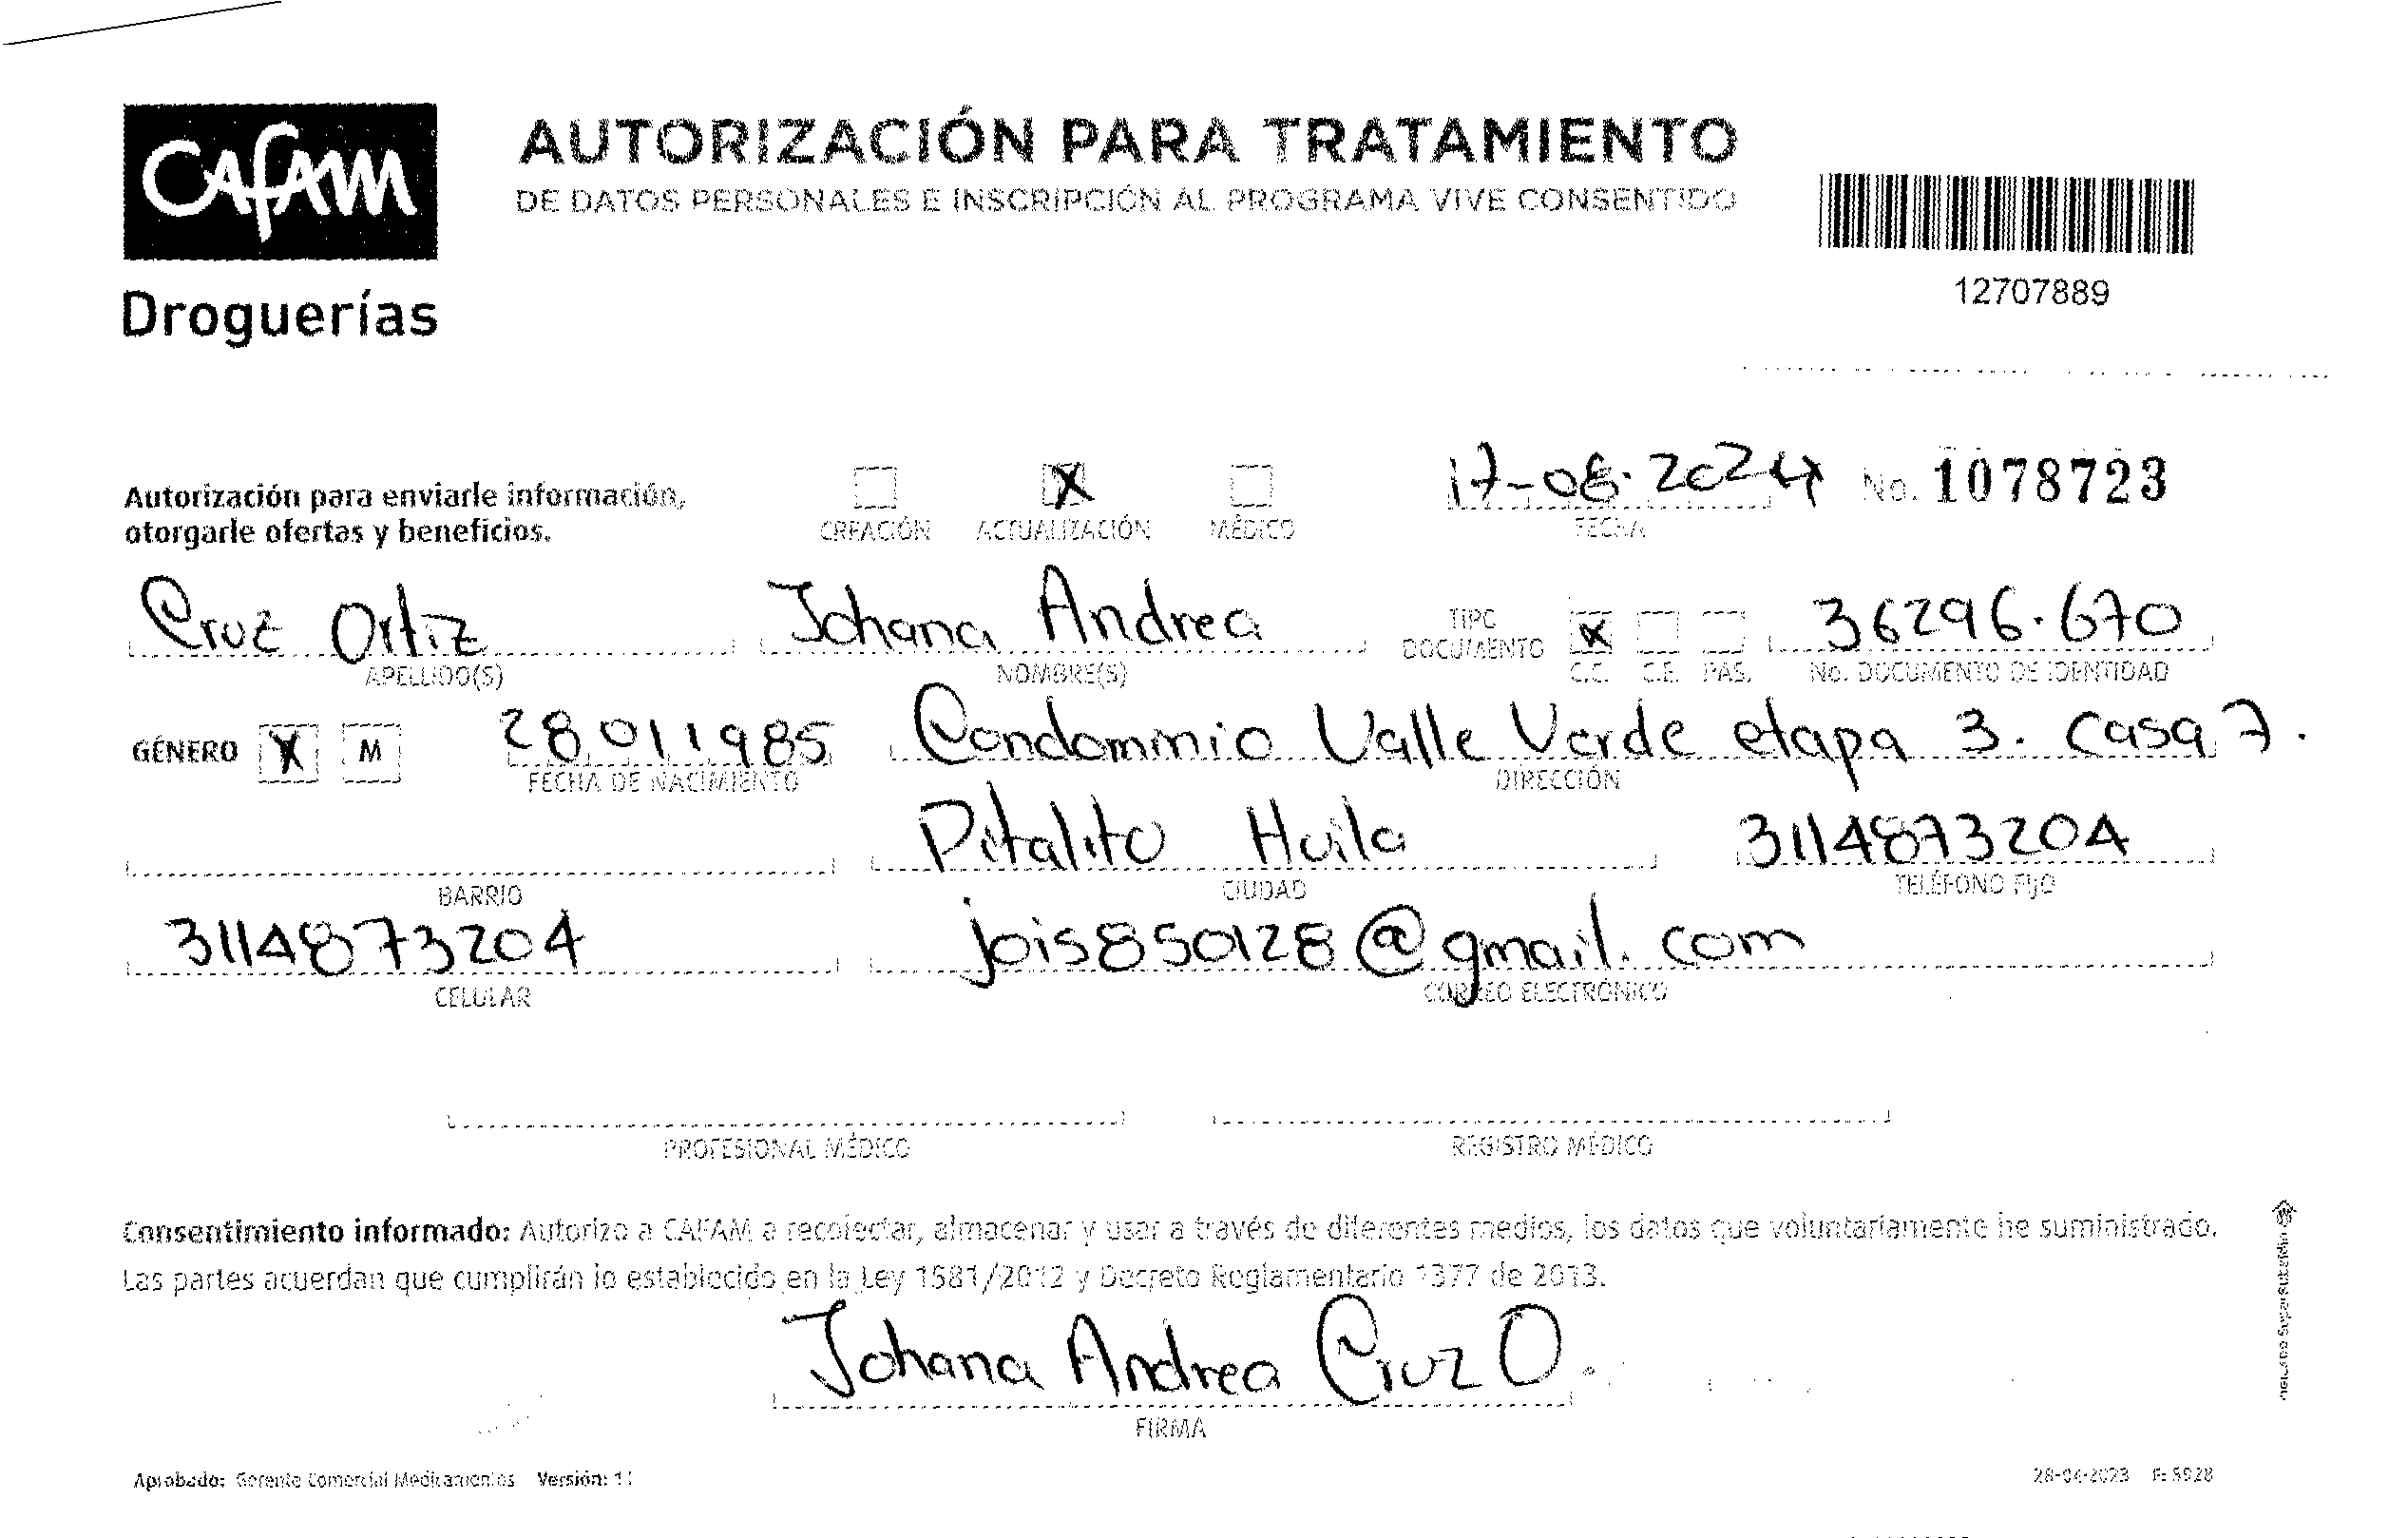 CAFAM
Droguerías
AUTORIZACIÓN PARA TRATAMIENTO
DE DATOS PERSONALES E INSCRIPCIÓN AL PROGRAMA VIVE CONSENTIDO
12707889
Autorización para enviarle información,
otorgarle ofertas y beneficios.
CREACIÓN X ACTUALIZACIÓN MÉDICO
17-08-2024 No. 1078723
FECHA
Cruz Ortiz Johana Andrea TIPO DOCUMENTO X 36296.670
APELLIDO(S) NOMBRE(S) C.C. C.E. PAS. No. DOCUMENTO DE IDENTIDAD
GÉNERO X M 28011985 Condominio Valle Verde etapa 3. Casa 7.
FECHA DE NACIMIENTO DIRECCIÓN
Pitalito Huila 3114873204
BARRIO CIUDAD TELÉFONO FIJO
3114873204 jois850128@gmail.com
CELULAR CORREO ELECTRÓNICO
PROFESIONAL MÉDICO REGISTRO MÉDICO
Consentimiento informado: Autorizo a CAFAM a recolectar, almacenar y usar a través de diferentes medios, los datos que voluntariamente he suministrado.
Las partes acuerdan que cumplirán lo establecido en la Ley 1581/2012 y Decreto Reglamentario 1377 de 2013.
Johana Andrea Cruz O.
FIRMA
Aprobado: Gerente Comercial Medicamentos Versión: 11
28-04-2023 F: 5928